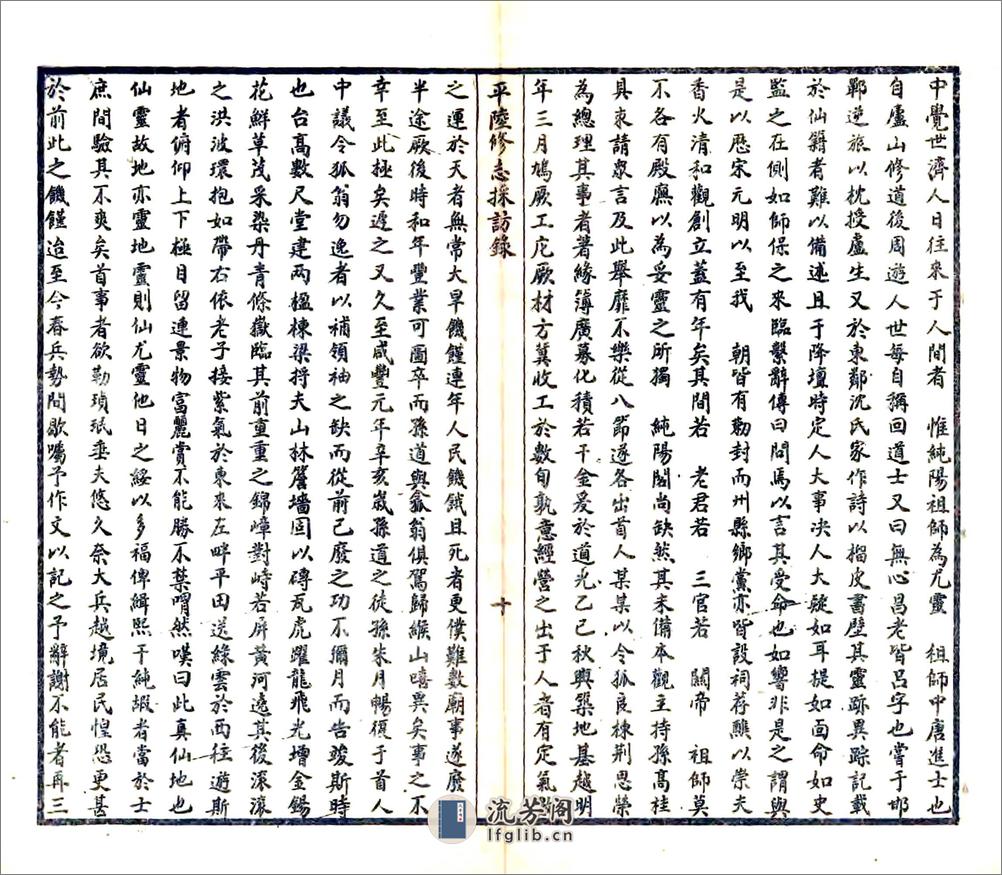 中覺世濟人日往來于人間者　惟純陽祖師為尤靈　祖師中唐進士也
自廬山修道後周遊人世每自稱回道士又曰無心昌老皆呂字也嘗于邯
鄲逆旅以枕授盧生又於東鄰沈氏家作詩以榴皮畵壁其靈跡異踪記載
於仙籍者難以備述且于降壇時定人大事決人大疑如耳提如面命如史
監之在側如師保之來臨繫辭傳曰問焉以言其受命也如響非是之謂與
是以歷宋元明以至我　朝皆有勅封而州縣鄉黨亦皆設祠荐醮以崇夫
香火清和觀創立蓋有年矣其間若　老君若　三官若　關帝　祖師莫
不各有殿廡以為妥靈之所獨　純陽閣尚缺然其未備本觀主持孫髙桂
具衷請眾言及此舉靡不樂從八節遂各出首人某某以令狐良棟荆思榮
為總理其事者著緣簿廣募化積若干金爰於道光乙巳秋興築地基越明
年三月鳩厥工庀厥材方冀收工於數旬孰意經營之出于人者有定氣數
平陸修志採訪錄
十
之運於天者無常大旱饑饉連年人民饑餓且死者更僕難數廟事遂廢
半途厥後時和年豐業可圖卒而孫道與龢翁俱駕歸緱山嘻異矣事之不
幸至此極矣遲之又久至咸豐元年辛亥嵗孫道之徒孫朱月暢復于首人
中議令狐翁勿逸者以補領袖之缺而從前已廢之功不彌月而告竣斯時
也台高數尺堂建兩楹棟梁捋夫山林簷墻固以磚瓦虎躍龍飛光增金錫
花鮮草茂采染丹青條嶽臨其前重重之錦嶂對峙若屏黃河遶其後滾滾
之洪波環抱如帶右依老子接紫氣於東來左畔平田送綠雲於西往遊斯
地者俯仰上下極目留連景物富麗賞不能勝不禁喟然嘆曰此真仙地也
仙靈故地亦靈地靈則仙尤靈他日之綏以多福俾緝熙于純嘏者當於士
庶間驗其不爽矣首事者欲勒瑣珉垂夫悠久奈大兵越境居民惶恐更甚
於前此之饑饉迨至今春兵勢間歇囑予作文以記之予辭謝不能者再三
流芳阁
lfglib.cn